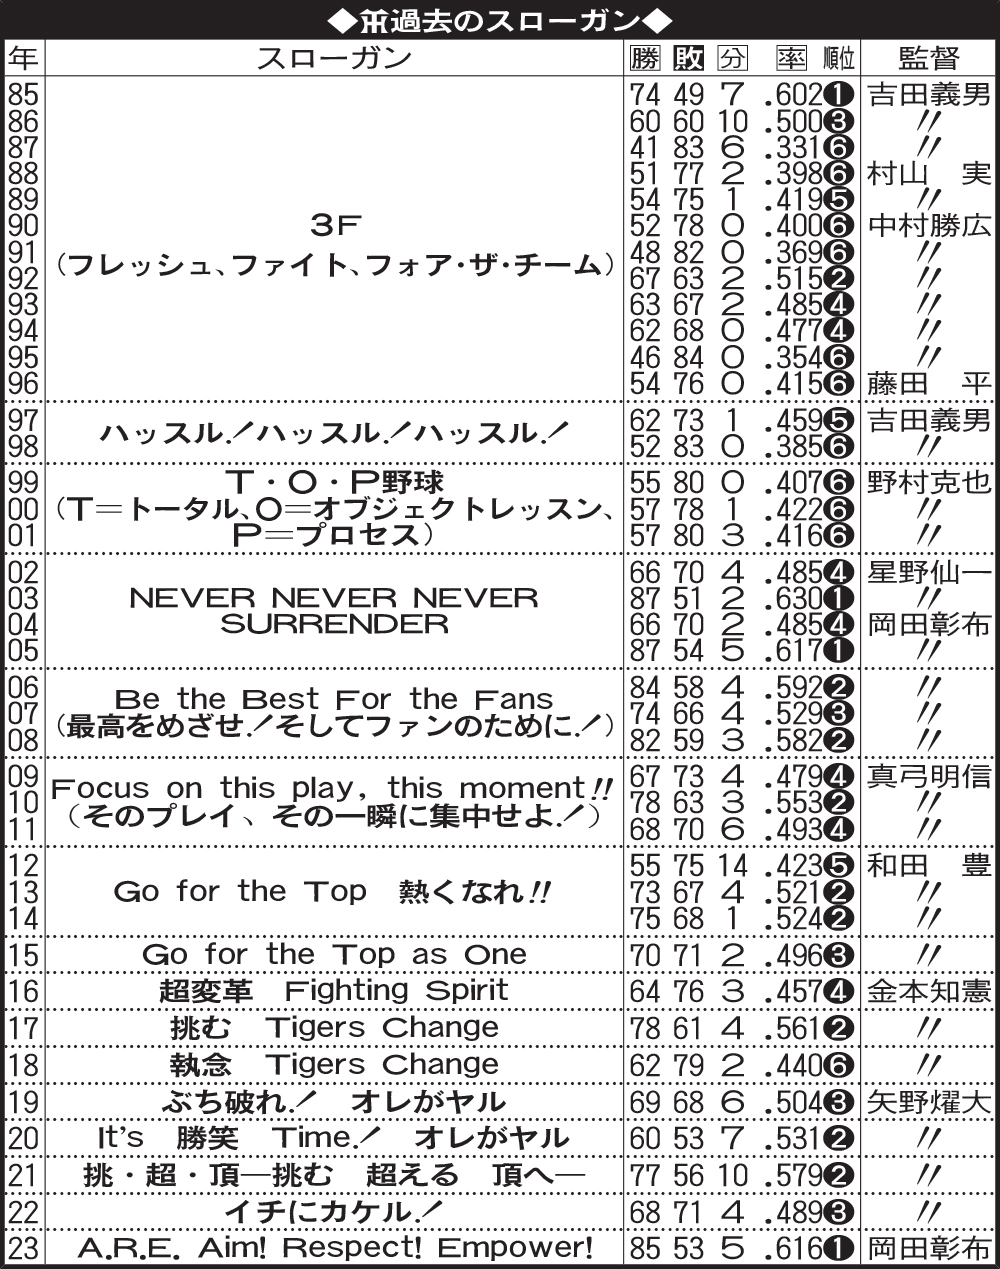 ◆過去のスローガン◆
年 スローガン 勝 敗 分 率 順位 監督
85 74 49 7 .602 ❶ 吉田義男
86 60 60 10 .500 ❸ 〃
87 41 83 6 .331 ❻ 〃
88 51 77 2 .398 ❻ 村山　実
89 54 75 1 .419 ❺ 〃
90 3F 52 78 0 .400 ❻ 中村勝広
91 (フレッシュ、ファイト、フォア・ザ・チーム) 48 82 0 .369 ❻ 〃
92 67 63 2 .515 ❷ 〃
93 63 67 2 .485 ❹ 〃
94 62 68 0 .477 ❹ 〃
95 46 84 0 .354 ❻ 〃
96 54 76 0 .415 ❻ 藤田　平
97 ハッスル！ハッスル！ハッスル！ 62 73 1 .459 ❺ 吉田義男
98 52 83 0 .385 ❻ 〃
99 T・O・P野球 55 80 0 .407 ❻ 野村克也
00 (T＝トータル、O＝オブジェクトレッスン、 57 78 1 .422 ❻ 〃
01 P＝プロセス) 57 80 3 .416 ❻ 〃
02 66 70 4 .485 ❹ 星野仙一
03 NEVER NEVER NEVER 87 51 2 .630 ❶ 〃
04 SURRENDER 66 70 2 .485 ❹ 岡田彰布
05 87 54 5 .617 ❶ 〃
06 Be the Best For the Fans 84 58 4 .592 ❷ 〃
07 (最高をめざせ！そしてファンのために！) 74 66 4 .529 ❸ 〃
08 82 59 3 .582 ❷ 〃
09 Focus on this play, this moment!! 67 73 4 .479 ❹ 真弓明信
10 (そのプレイ、その一瞬に集中せよ！) 78 63 3 .553 ❷ 〃
11 68 70 6 .493 ❹ 〃
12 55 75 14 .423 ❺ 和田　豊
13 Go for the Top　熱くなれ!! 73 67 4 .521 ❷ 〃
14 75 68 1 .524 ❷ 〃
15 Go for the Top as One 70 71 2 .496 ❸ 〃
16 超変革　Fighting Spirit 64 76 3 .457 ❹ 金本知憲
17 挑む　Tigers Change 78 61 4 .561 ❷ 〃
18 執念　Tigers Change 62 79 2 .440 ❻ 〃
19 ぶち破れ！　オレがヤル 69 68 6 .504 ❸ 矢野燿大
20 It's　勝笑　Time！　オレがヤル 60 53 7 .531 ❷ 〃
21 挑・超・頂―挑む　超える　頂へ― 77 56 10 .579 ❷ 〃
22 イチにカケル！ 68 71 4 .489 ❸ 〃
23 A.R.E. Aim! Respect! Empower! 85 53 5 .616 ❶ 岡田彰布